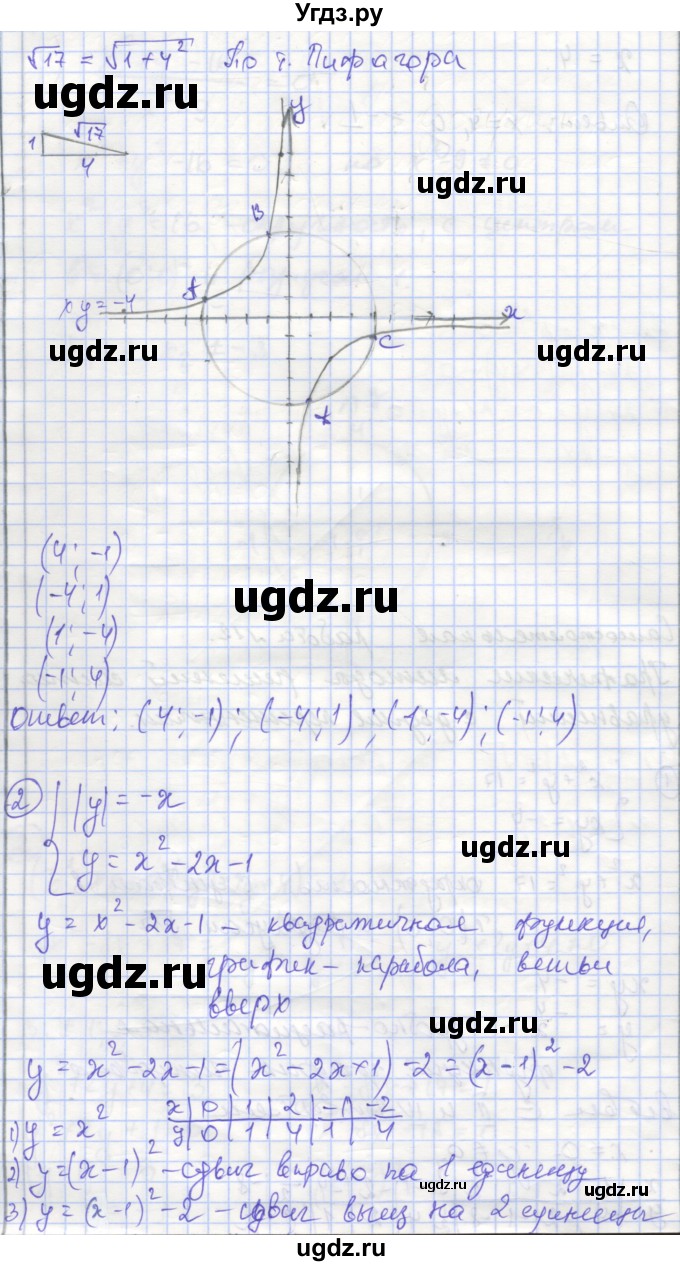 Угдз.ру
√17 = √1+4² По т. Пифагора
ugdz.ru
1 √17 4
ugdz.ru
y
B
A
xy=-4
x
C
ugdz.ru
ugdz.ru
(4; -1)
(-4; 1)
ugdz.ru
(1; -4)
(-1; 4)
Ответ: (4; -1); (-4; 1); (1; -4); (-1; 4)
2 { |y| = -x
y = x² - 2x - 1
ugdz.ru
y = x² - 2x - 1 - квадратичная функция,
ugdz.ru график - парабола, ветви
вверх
ugdz.ru
y = x² - 2x - 1 = (x² - 2x + 1) - 2 = (x - 1)² - 2
1) y = x² x | 0 | 1 | 2 | -1 | -2
y | 0 | 1 | 4 | 1 | 4
2) y = (x - 1)² - сдвиг вправо на 1 единицу
ugdz.ru
ugdz.ru
3) y = (x - 1)² - 2 - сдвиг вниз на 2 единицы
ugdz.ru